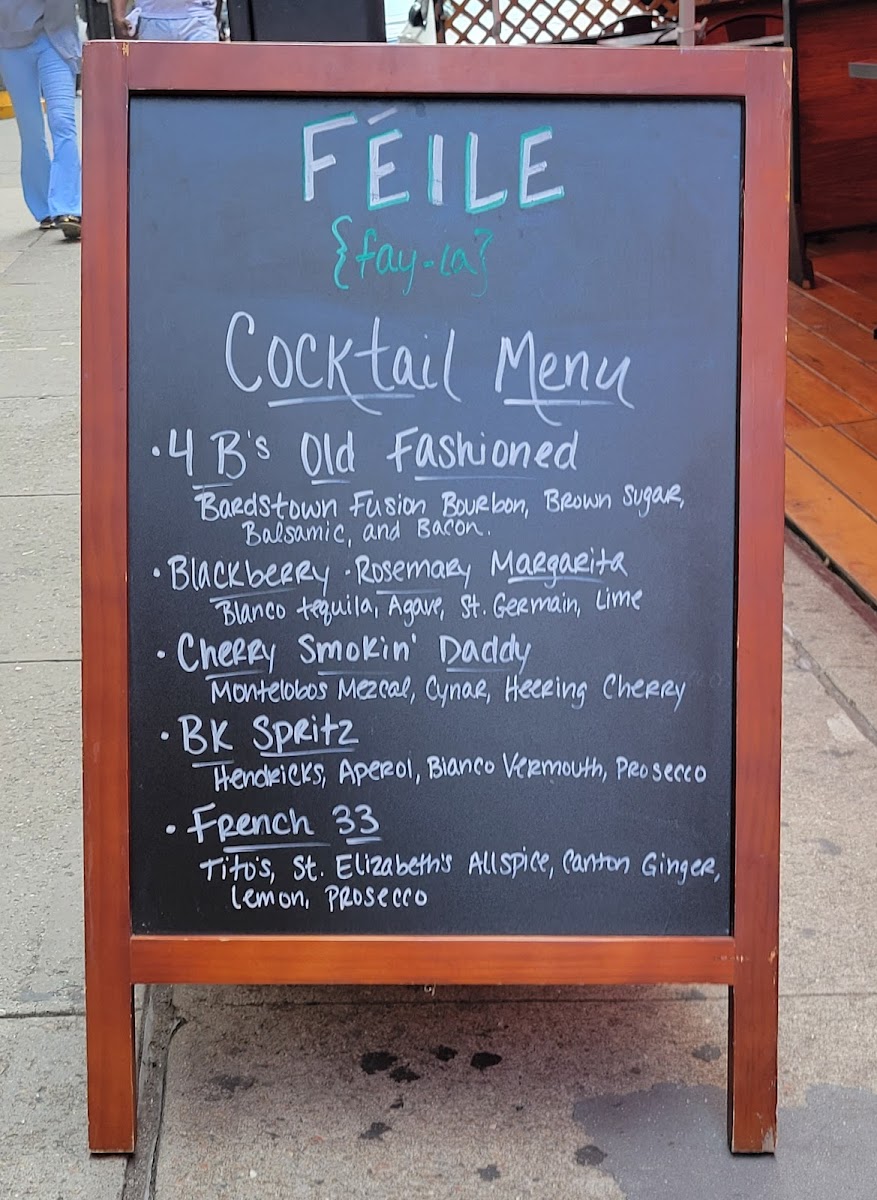 FÉILE
{fay-la}
Cocktail Menu
·4 B's Old Fashioned
Bardstown Fusion Bourbon, Brown Sugar,
Balsamic, and Bacon.
·Blackberry·Rosemary Margarita
Blanco tequila, Agave, St. Germain, Lime
·Cherry Smokin' Daddy
Montelobos Mezcal, Cynar, Heering Cherry
·BK Spritz
Hendricks, Aperol, Bianco Vermouth, Prosecco
·French 33
Tito's, St. Elizabeth's Allspice, Canton Ginger,
Lemon, Prosecco